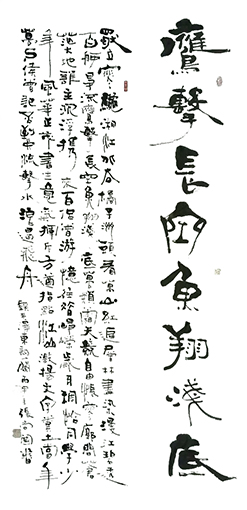 鷹擊長空魚翔淺底
獨立寒秋湘江北去橘子洲頭看萬山紅遍層林盡染漫江碧透
百舸爭流鷹擊長空魚翔淺底萬類霜天競自由悵寥廓問蒼
茫大地誰主沉浮攜來百侶曾游憶往昔崢嶸歲月稠恰同學少
年風華正茂書生意氣揮斥方遒指點江山激揚文字糞土當年
萬戶侯曾記否到中流擊水浪遏飛舟
錄毛澤東詞